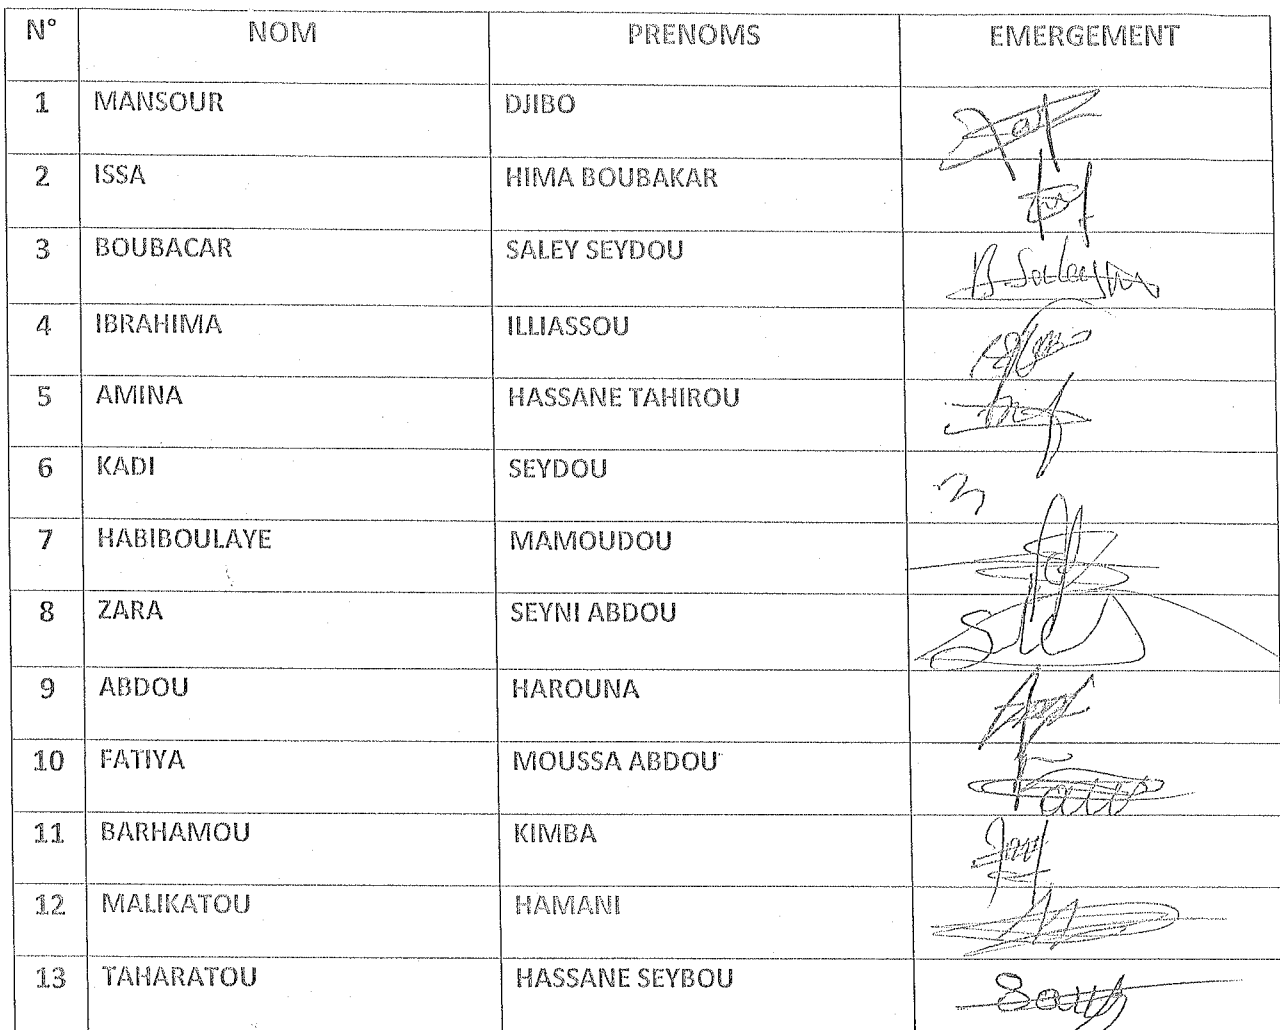 N° NOM PRENOMS EMERGEMENT
1 MANSOUR DJIBO
2 ISSA HIMA BOUBAKAR
3 BOUBACAR SALEY SEYDOU
4 IBRAHIMA ILLIASSOU
5 AMINA HASSANE TAHIROU
6 KADI SEYDOU
7 HABIBOULAYE MAMOUDOU
8 ZARA SEYNI ABDOU
9 ABDOU HAROUNA
10 FATIYA MOUSSA ABDOU
11 BARHAMOU KIMBA
12 MALIKATOU HAMANI
13 TAHARATOU HASSANE SEYBOU